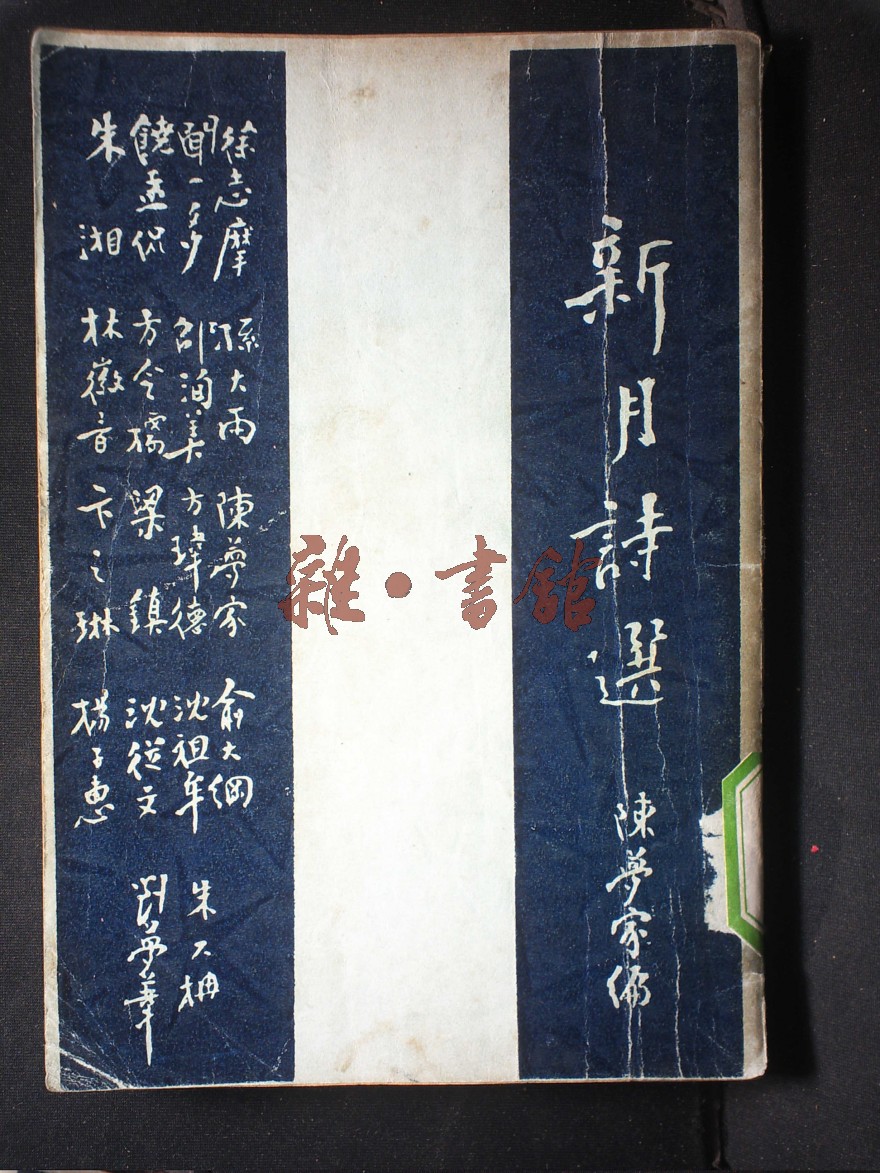 新月詩選 陳夢家編
雜·書館
徐志摩 孫大雨 陳夢家 俞大綱
聞一多 邵洵美 方瑋德 沈祖牟 朱大枬
饒孟侃 方令孺 梁鎮 沈從文 劉夢葦
朱湘 林徽音 卞之琳 楊子惠